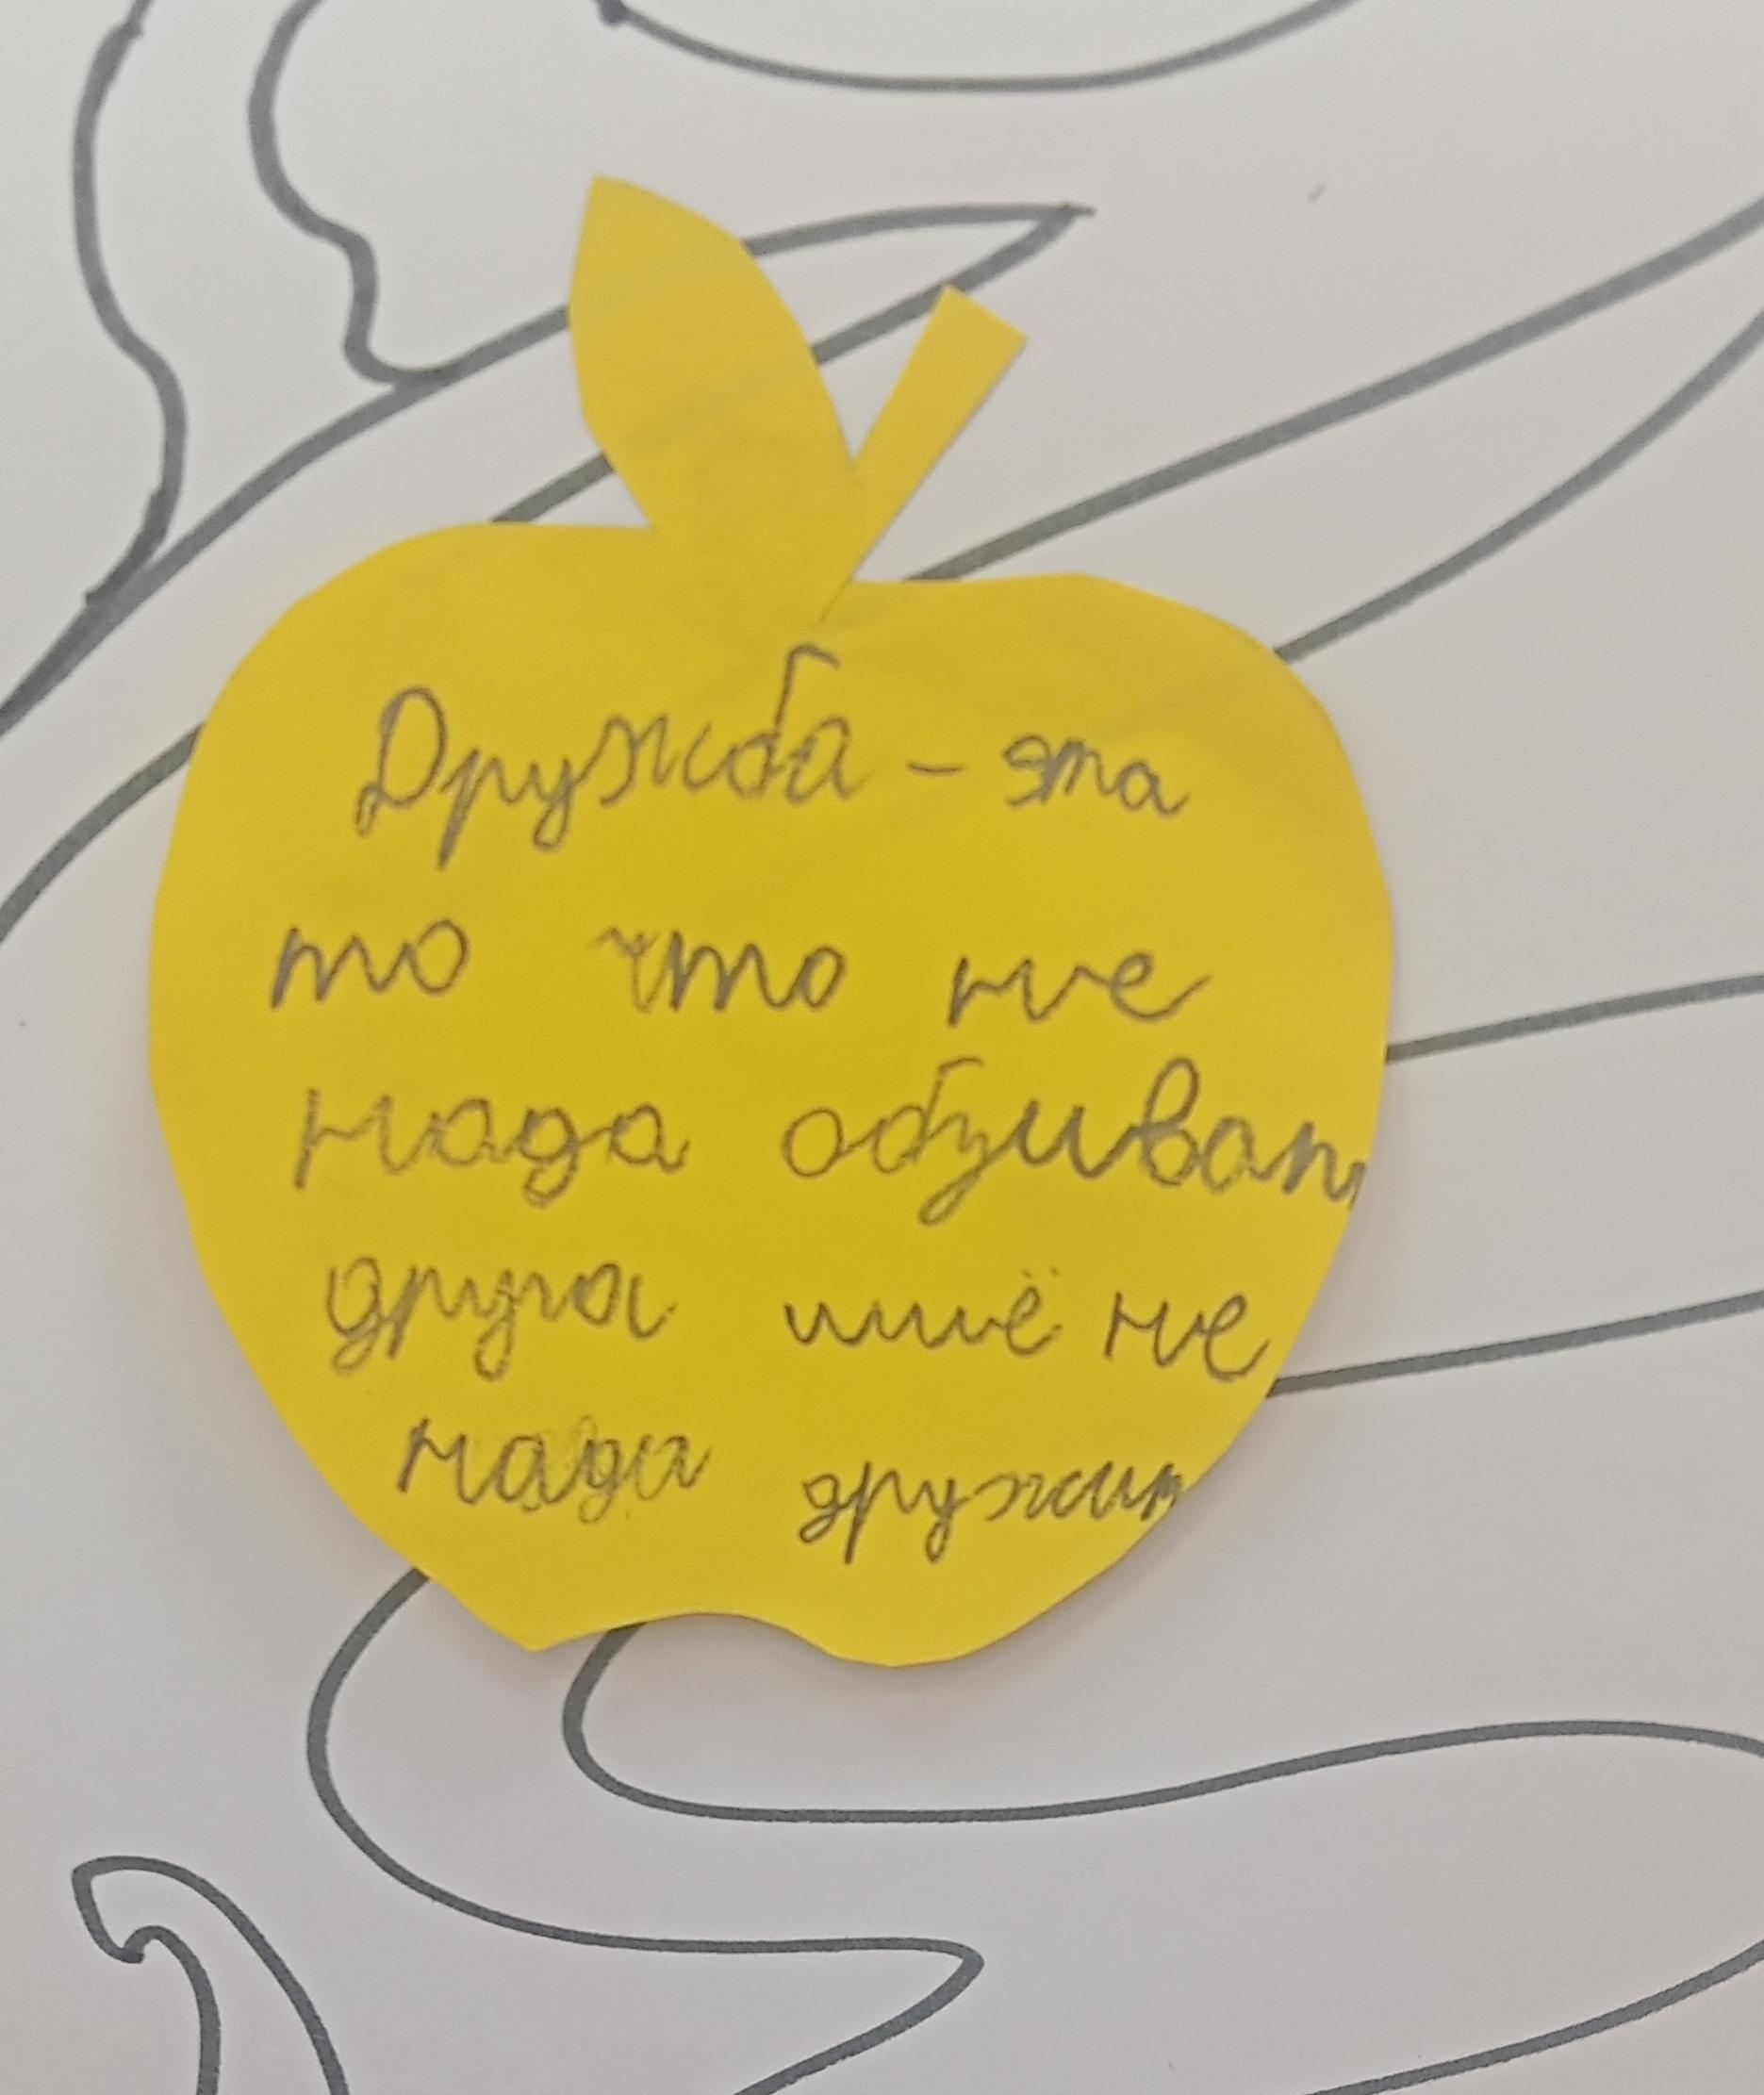 Дружба - эта
то что не
нада обзиват
друга ишё не
нада дружит